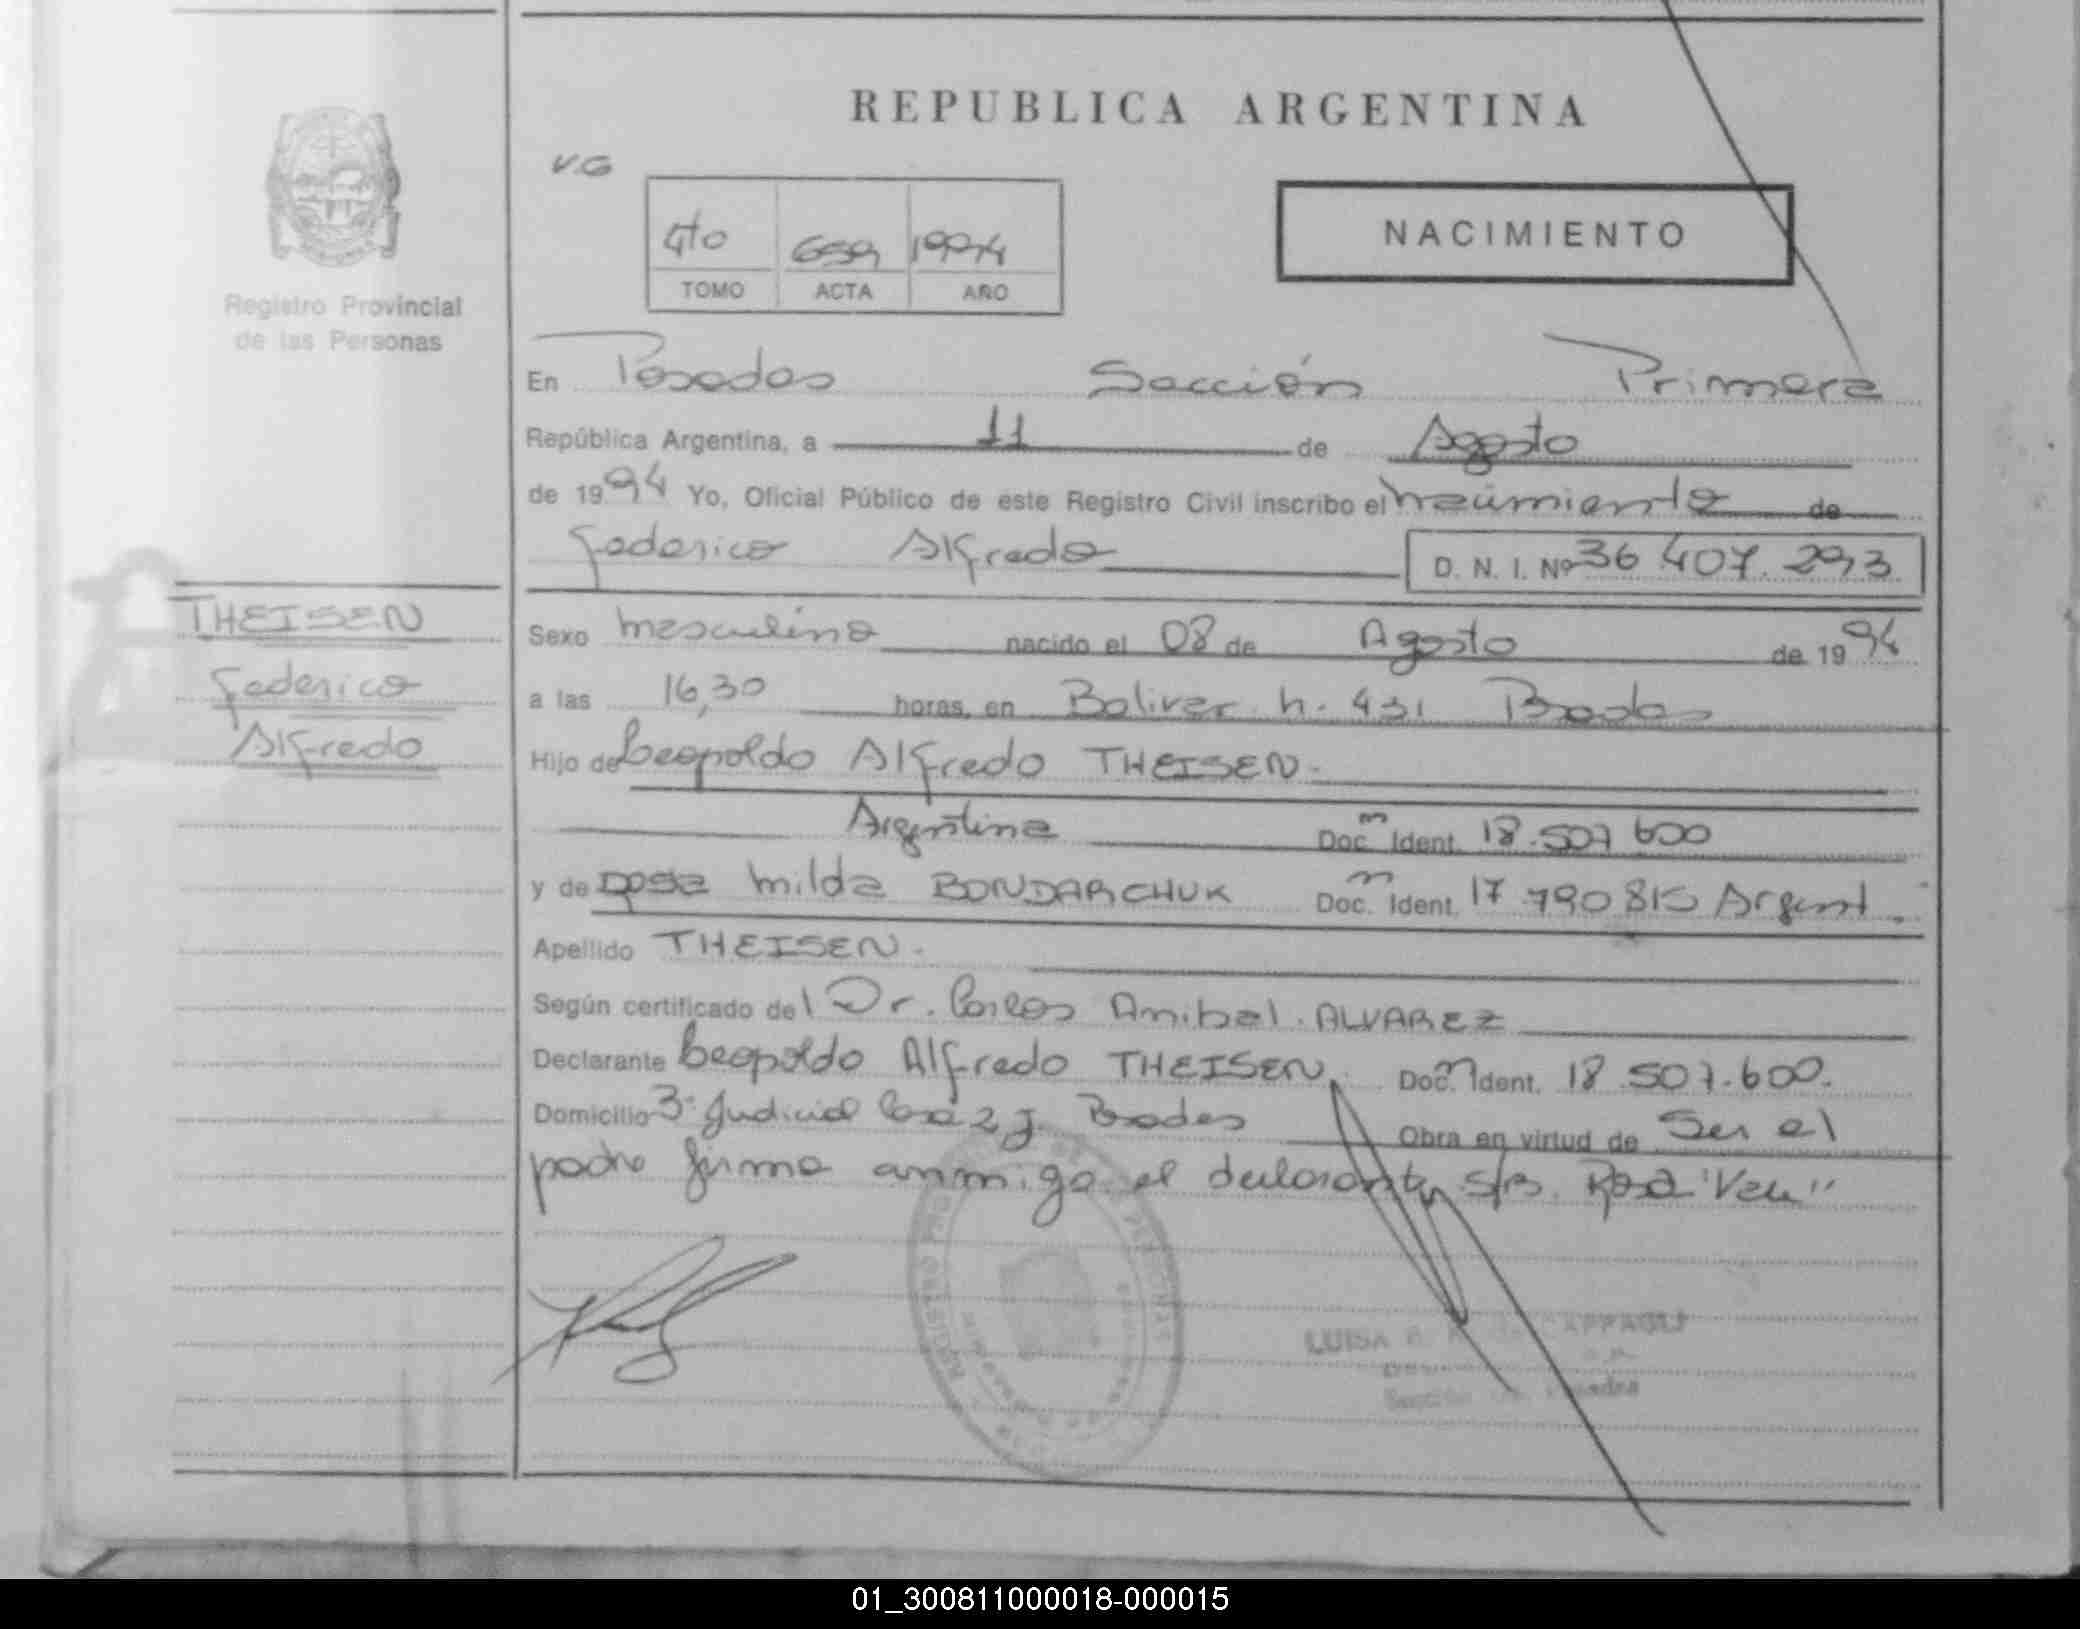 REPUBLICA ARGENTINA
V.G
4to 659 1994
TOMO ACTA AÑO
NACIMIENTO
Registro Provincial
de las Personas
En Posadas Sección Primera
República Argentina, a 11 de Agosto
de 1994 Yo, Oficial Público de este Registro Civil inscribo el nacimiento de
Federico Alfredo D. N. I. Nº 36 407. 293
THEISEN
Federico
Alfredo
Sexo masculino nacido el 08 de Agosto de 1994
a las 16,30 horas, en Bolivar n. 431 Posadas
Hijo de Leopoldo Alfredo THEISEN.
Argentina Doc. m Ident. 18.507 600
y de Rosa Milda BONDARCHUK Doc. m Ident. 17 790 815 Argent.
Apellido THEISEN.
Según certificado del Dr. Carlos Anibal ALVAREZ
Declarante Leopoldo Alfredo THEISEN Doc. m Ident. 18 507.600.
Domicilio 3º Judicial Casa 2 J. Posadas Obra en virtud de Ser el
padre firma conmigo el declarante S/B. Rosa "Vale"
REGISTRO DE PERSONAS
LUISA
Sección Posadas
01_300811000018-000015